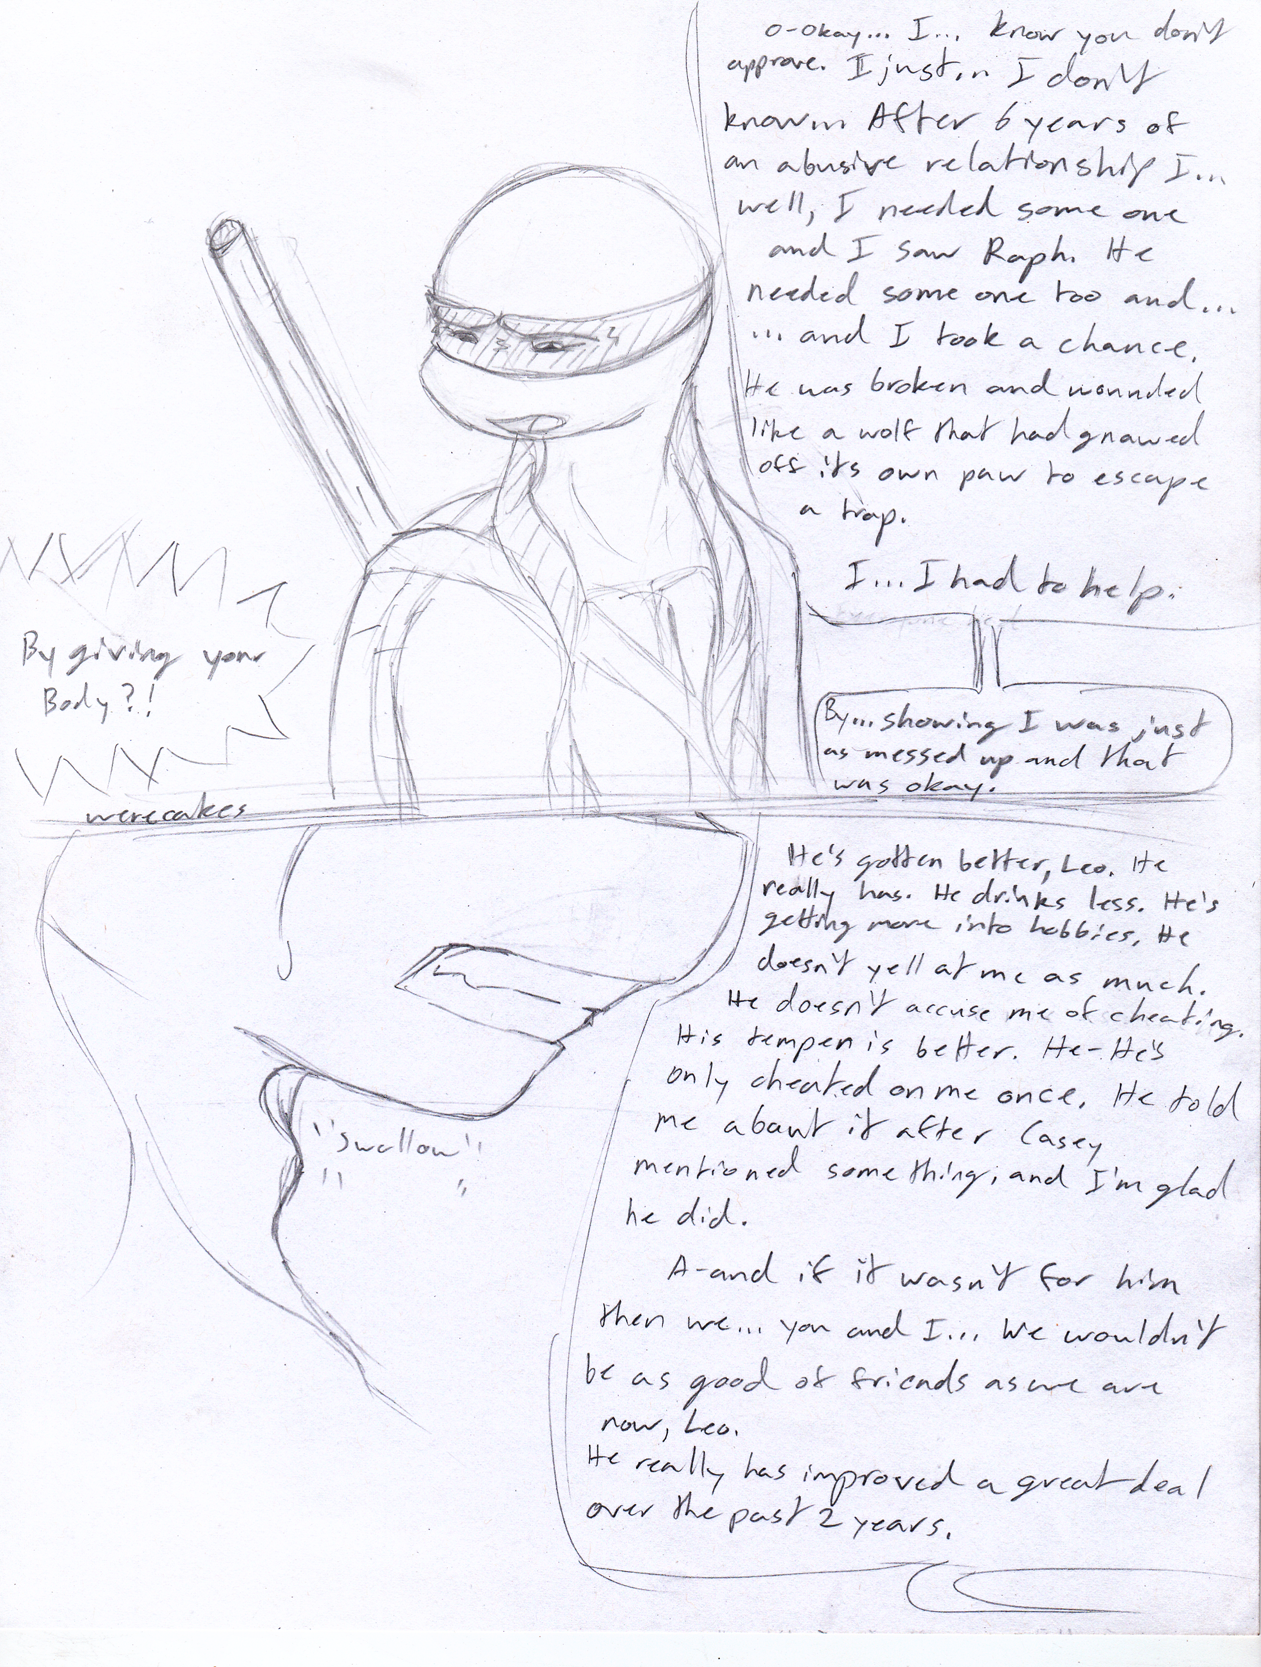 O-okay... I... know you don't
approve. I just... I don't
know... After 6 years of
an abusive relationship I...
well, I needed some one
and I saw Raph. He
needed some one too and...
... and I took a chance.
He was broken and wounded
like a wolf that had gnawed
off it's own paw to escape
a trap.
I... I had to help.
By giving your
Body?!
By... showing I was just
as messed up and that
was okay.
werecakes
He's gotten better, Leo. He
really has. He drinks less. He's
getting more into hobbies. He
doesn't yell at me as much.
He doesn't accuse me of cheating.
His temper is better. He-He's
only cheated on me once. He told
me about it after Casey
mentioned something, and I'm glad
he did.
"swallow"
A-and if it wasn't for him
then we... you and I... We wouldn't
be as good of friends as we are
now, Leo.
He really has improved a great deal
over the past 2 years.